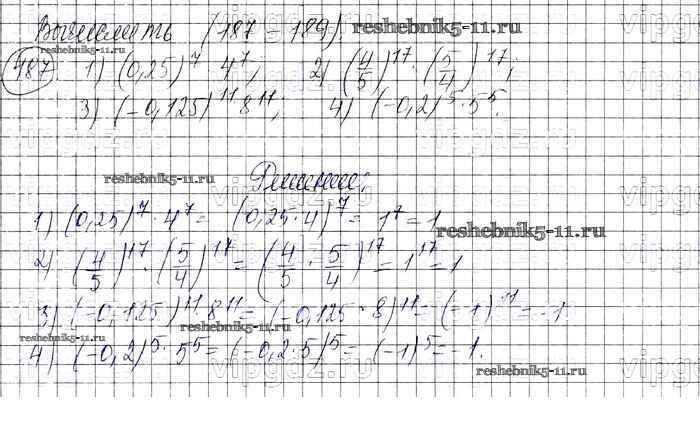 Вычислить (187 – 189).
reshebnik5-11.ru
reshebnik5-11.ru
187 1) (0,25)⁷ 4⁷; 2) (4/5)¹⁷ · (5/4)¹⁷;
3) (-0,125)¹¹ 8¹¹; 4) (-0,2)⁵ · 5⁵.
reshebnik5-11.ru
Решение:
1) (0,25)⁷ · 4⁷ = (0,25 · 4)⁷ = 1⁷ = 1
reshebnik5-11.ru
2) (4/5)¹⁷ · (5/4)¹⁷ = (4/5 · 5/4)¹⁷ = 1¹⁷ = 1
3) (-0,125)¹¹ 8¹¹ = (-0,125 · 8)¹¹ = (-1)¹¹ = -1.
reshebnik5-11.ru
4) (-0,2)⁵ · 5⁵ = (-0,2 · 5)⁵ = (-1)⁵ = -1.
reshebnik5-11.ru
reshebnik5-11.ru